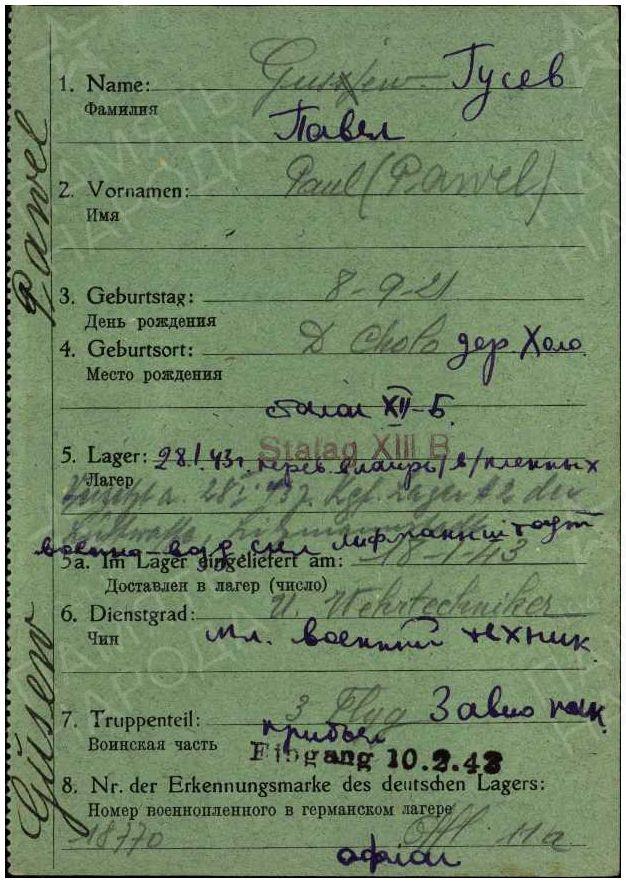 1. Name: Gussjew Гусев
Фамилия
Павел
2. Vornamen: Paul (Pawel)
Имя
3. Geburtstag: 8-9-21
День рождения
4. Geburtsort: D Cholo дер. Холо
Место рождения
сталаг XII-Б
Stalag XIII B
5. Lager: 28.I.43г. перев в лагерь /в/ пленных
Лагерь
28 I 43 Lager №2 der
Luftwaffe
военно-возд сил Лицманштадт
5a. Im Lager eingeliefert am: 18-1-43
Доставлен в лагерь (число)
6. Dienstgrad: U. Wehrtechniker
Чин мл. военный техник
7. Truppenteil: 3 Flug 3 авио полк
Воинская часть прибыл
Eingang 10.2.43
8. Nr. der Erkennungsmarke des deutschen Lagers:
Номер военнопленного в германском лагере
18770 Offl 11a
офлаг
Güsew Pawel
ПАМЯТЬ
НАРОДА